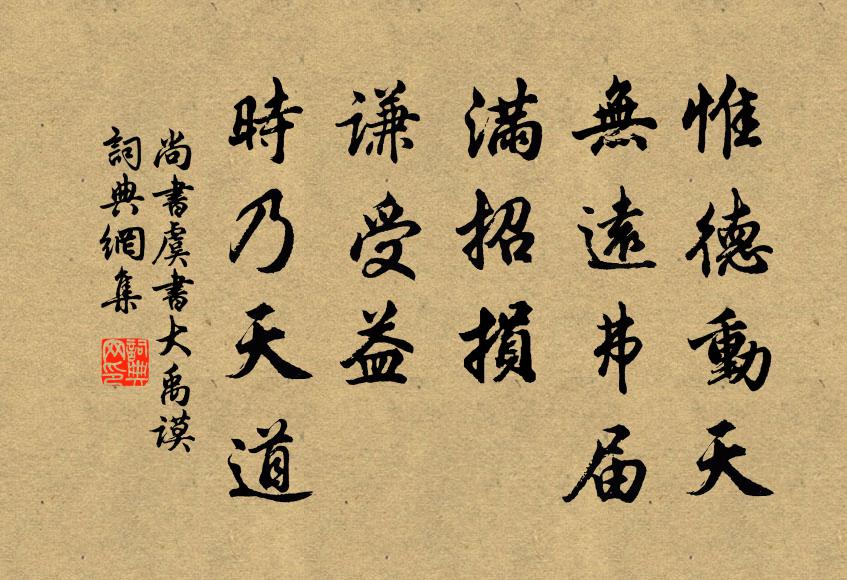 惟德動天
無遠弗届
滿招損
谦受益
時乃天道
尚書虞書大禹謨
詞典網集
詞典
网印